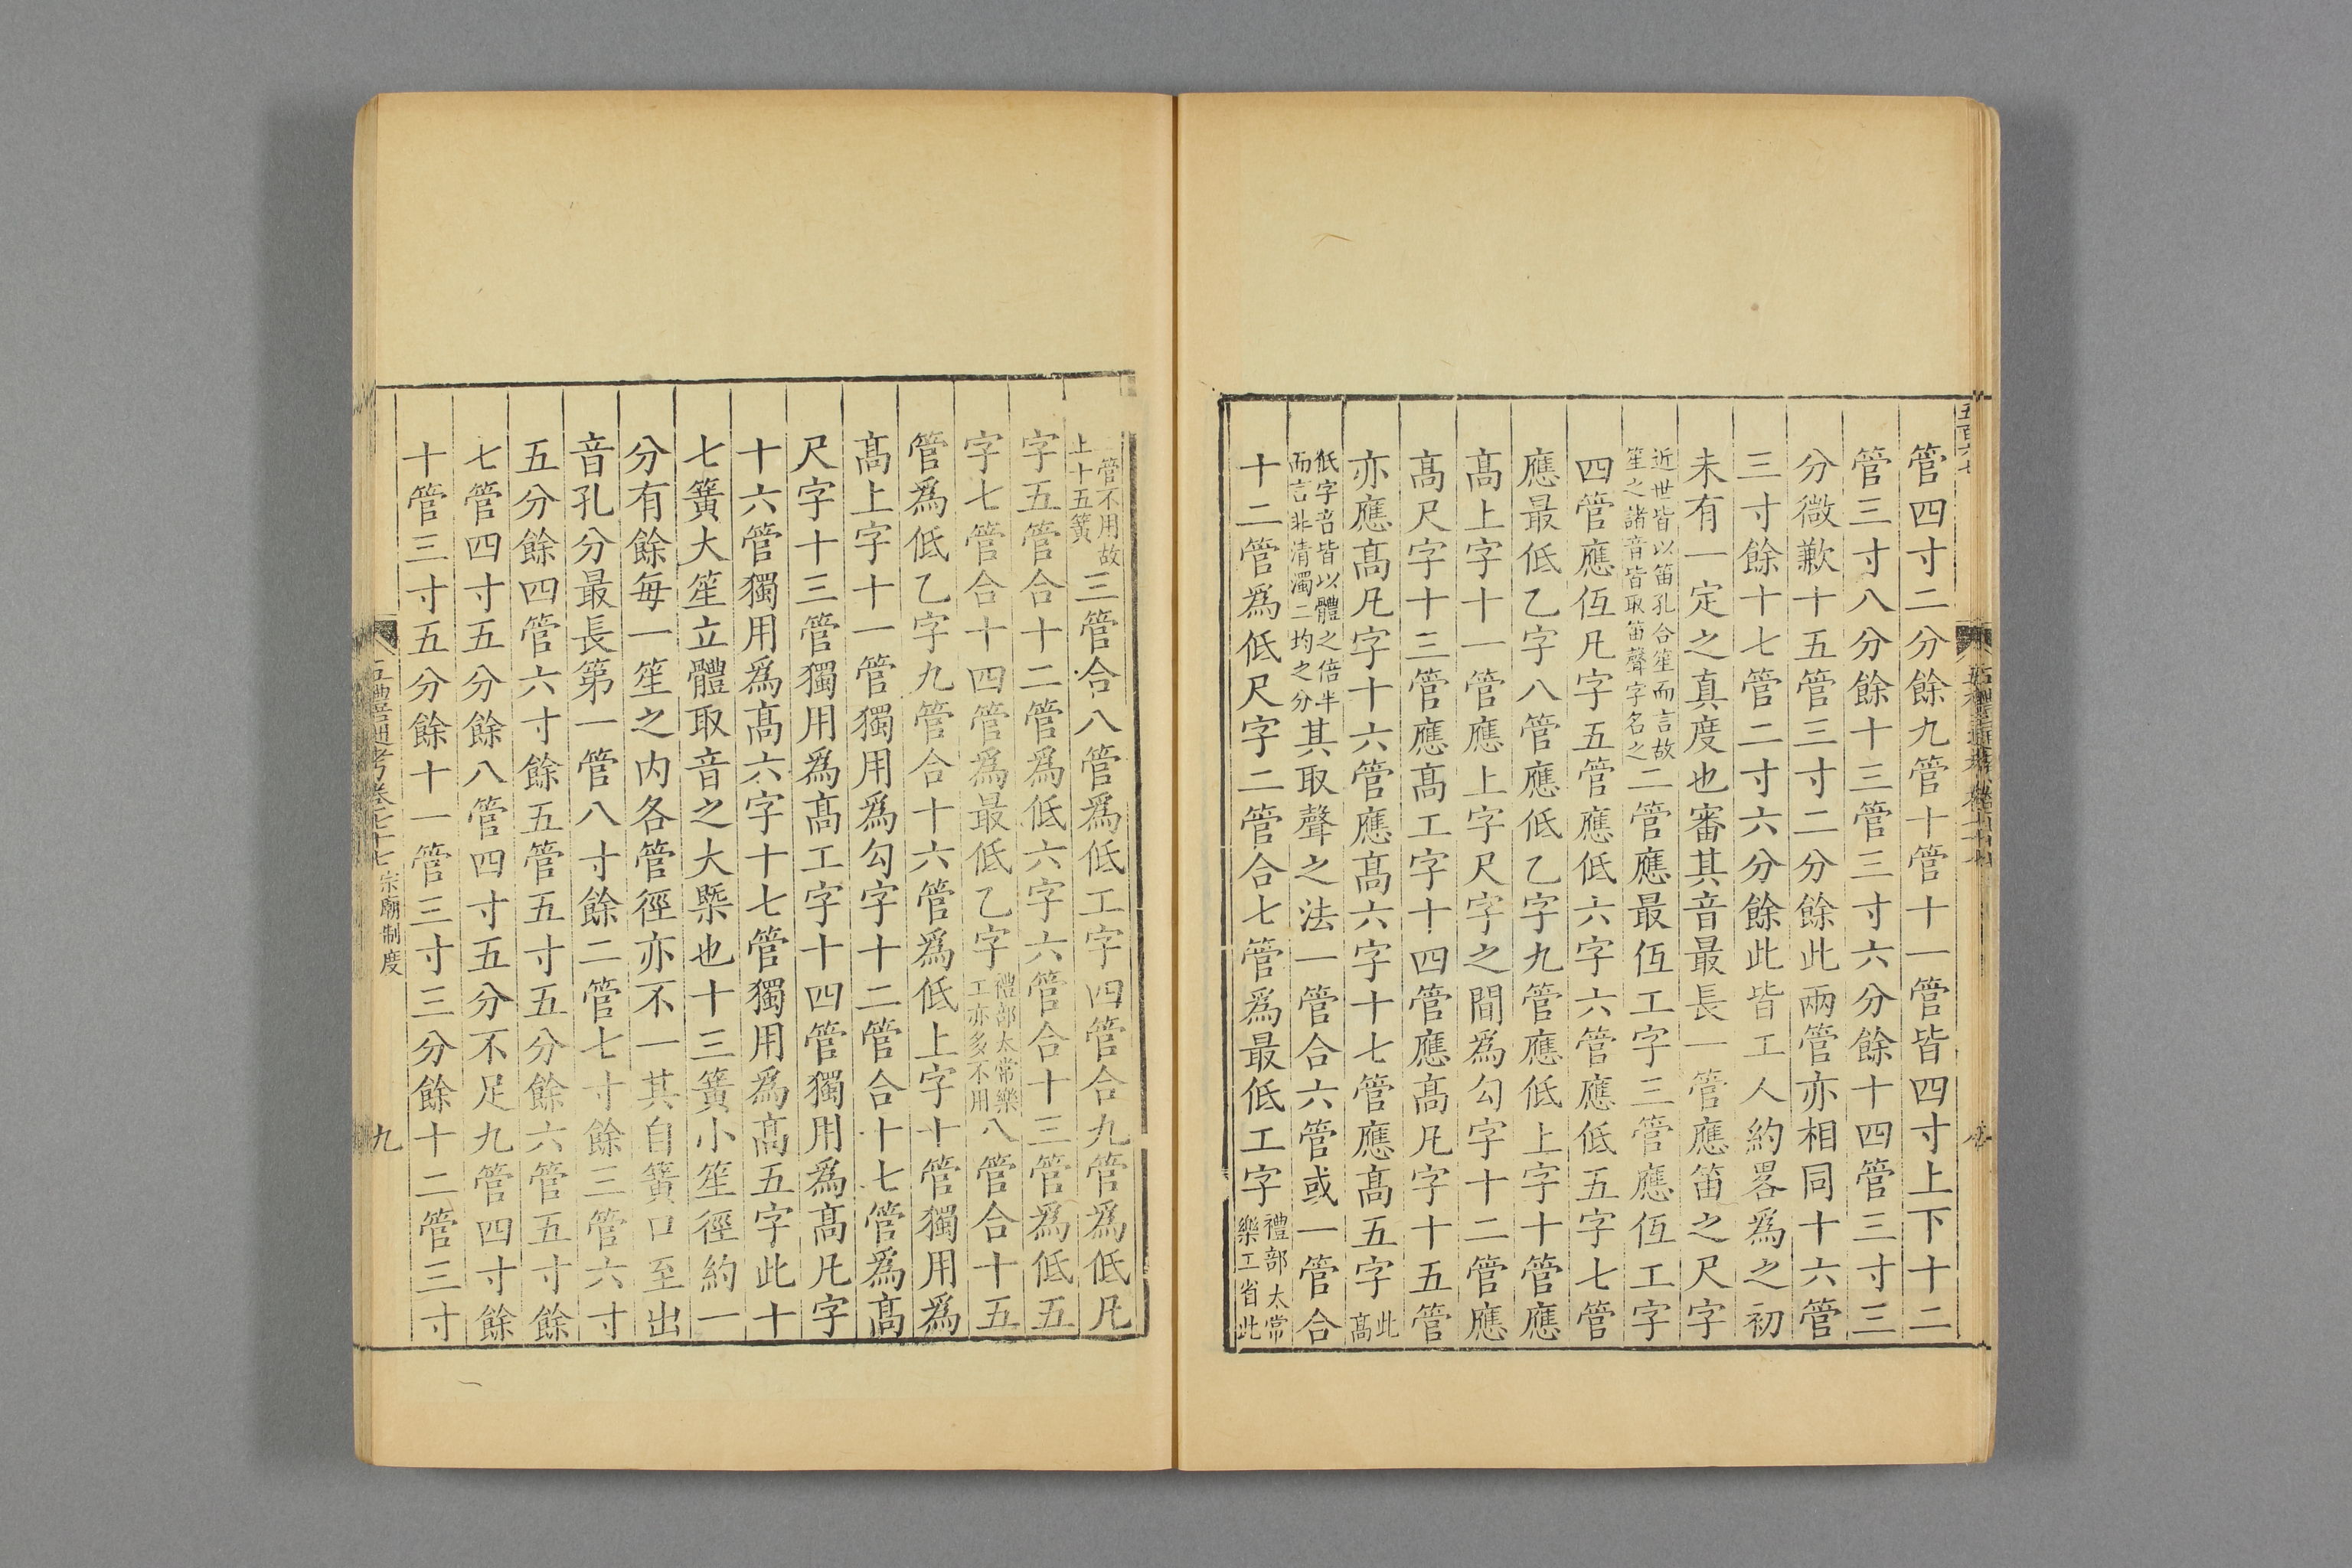 管四寸二分餘九管十管十一管皆四寸上下十二
管三寸八分餘十三管三寸六分餘十四管三寸三
分微歉十五管三寸二分餘此兩管亦相同十六管
三寸餘十七管二寸六分餘此皆工人約畧為之初
未有一定之真度也審其音最長一管應笛之尺字
近世皆以笛孔合笙而言故
笙之諸音皆取笛聲字名之
二管應最低工字三管應低工字
四管應低凡字五管應低六字六管應低五字七管
應最低乙字八管應低乙字九管應低上字十管應
高上字十一管應上字尺字之間為勾字十二管應
高尺字十三管應高工字十四管應高凡字十五管
亦應高凡字十六管應高六字十七管應高五字
此
高
低字音皆以體之倍半
而言非清濁二均之分
其取聲之法一管合六管或一管合
十二管為低尺字二管合七管為最低工字
禮部太常
樂工省此
一管不用故
上十五簧
三管合八管為低工字四管合九管為低凡
字五管合十二管為低六字六管合十三管為低五
字七管合十四管為最低乙字
禮部太常樂
工亦多不用
八管合十五
管為低乙字九管合十六管為低上字十管獨用為
高上字十一管獨用為勾字十二管合十七管為高
尺字十三管獨用為高工字十四管獨用為高凡字
十六管獨用為高六字十七管獨用為高五字此十
七簧大笙立體取音之大槩也十三簧小笙徑約一
分有餘每一笙之內各管徑亦不一其自簧口至出
音孔分最長第一管八寸餘二管七寸餘三管六寸
五分餘四管六寸餘五管五寸五分餘六管五寸餘
七管四寸五分餘八管四寸五分不足九管四寸餘
十管三寸五分餘十一管三寸三分餘十二管三寸
五禮通考卷七十七
宗廟制度
九